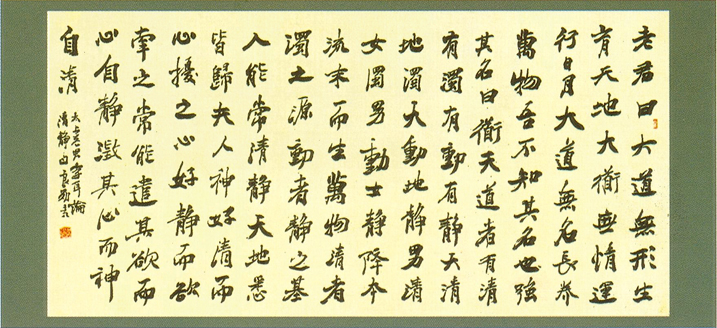 老君曰大道無形生
育天地大衟無情運
行日月大道無名長养
萬物吾不知其名也強
其名曰衟夫道者有清
有濁有動有靜天清
地濁天動地靜男清
女濁男動女靜降本
流末而生萬物清者
濁之源動者靜之基
人能常清靜天地悉
皆歸夫人神好清而
心擾之心好靜而欲
牽之常能遣其欲而
心自靜澂其心而神
自清
太上老君李耳論
清靜